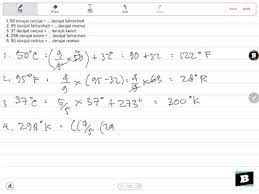 1. 50 derajat celcius = ... derajat fahrenheit
2. 95 derajat fahrenheit = ... derajat reamur
3. 37 derajat celcius = ... derajat kelvin
4. 298 derajat kelvin = ... derajat fahrenheit
5. 60 derajat celcius = ... derajat kelvin
1. 50°C = (9/5 × 50) + 32° = 90 + 32 = 122°F
2. 95°F = 4/9 × (95-32) = 4/9 × 63 = 28°R
3. 37°C = 5/5 × 37° + 273° = 300°K
4. 298°K = ((9/5 . (29
B